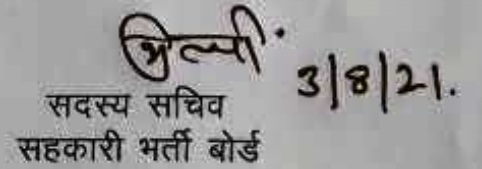 3/8/21.
सदस्य सचिव
सहकारी भर्ती बोर्ड